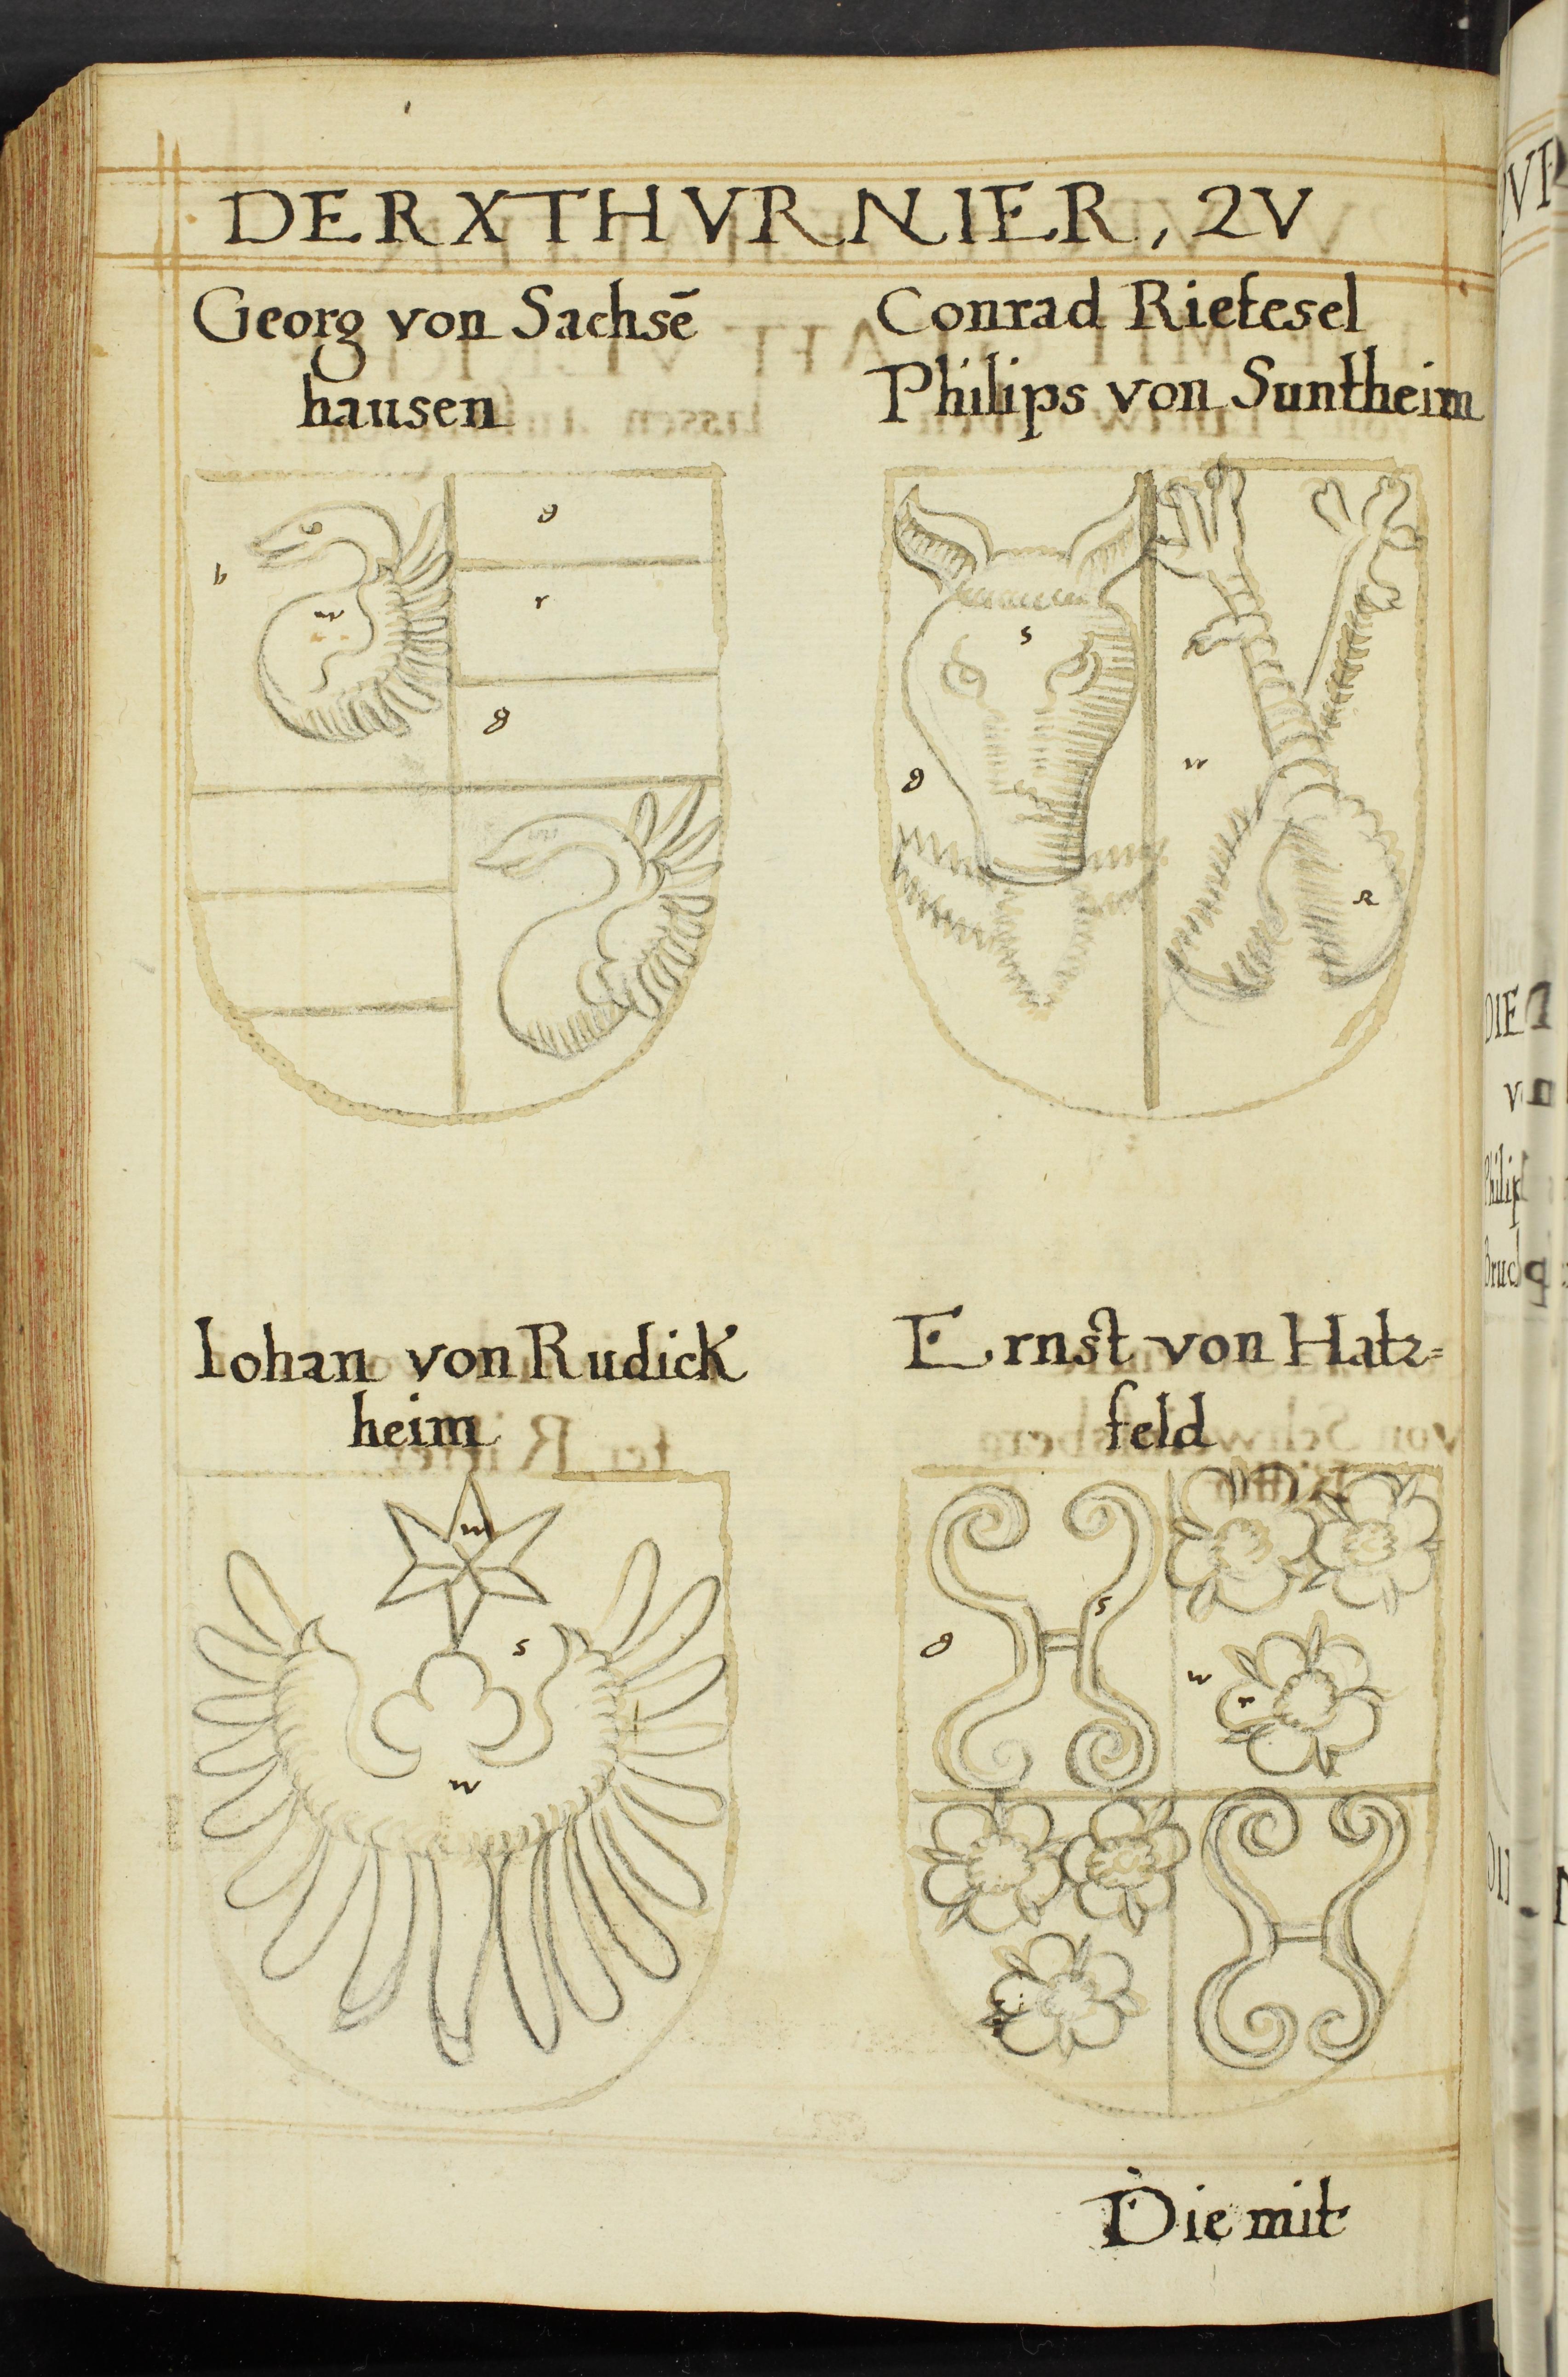 DER X THVRNIER, 2V
Georg von Sachsē
hausen
Conrad Rietesel
Philips von Suntheim
b
w
g
r
g
s
g
w
R
Iohan von Rudick
heim
Ernst von Hatz=
feld
w
s
w
s
g
w
r
Die mit